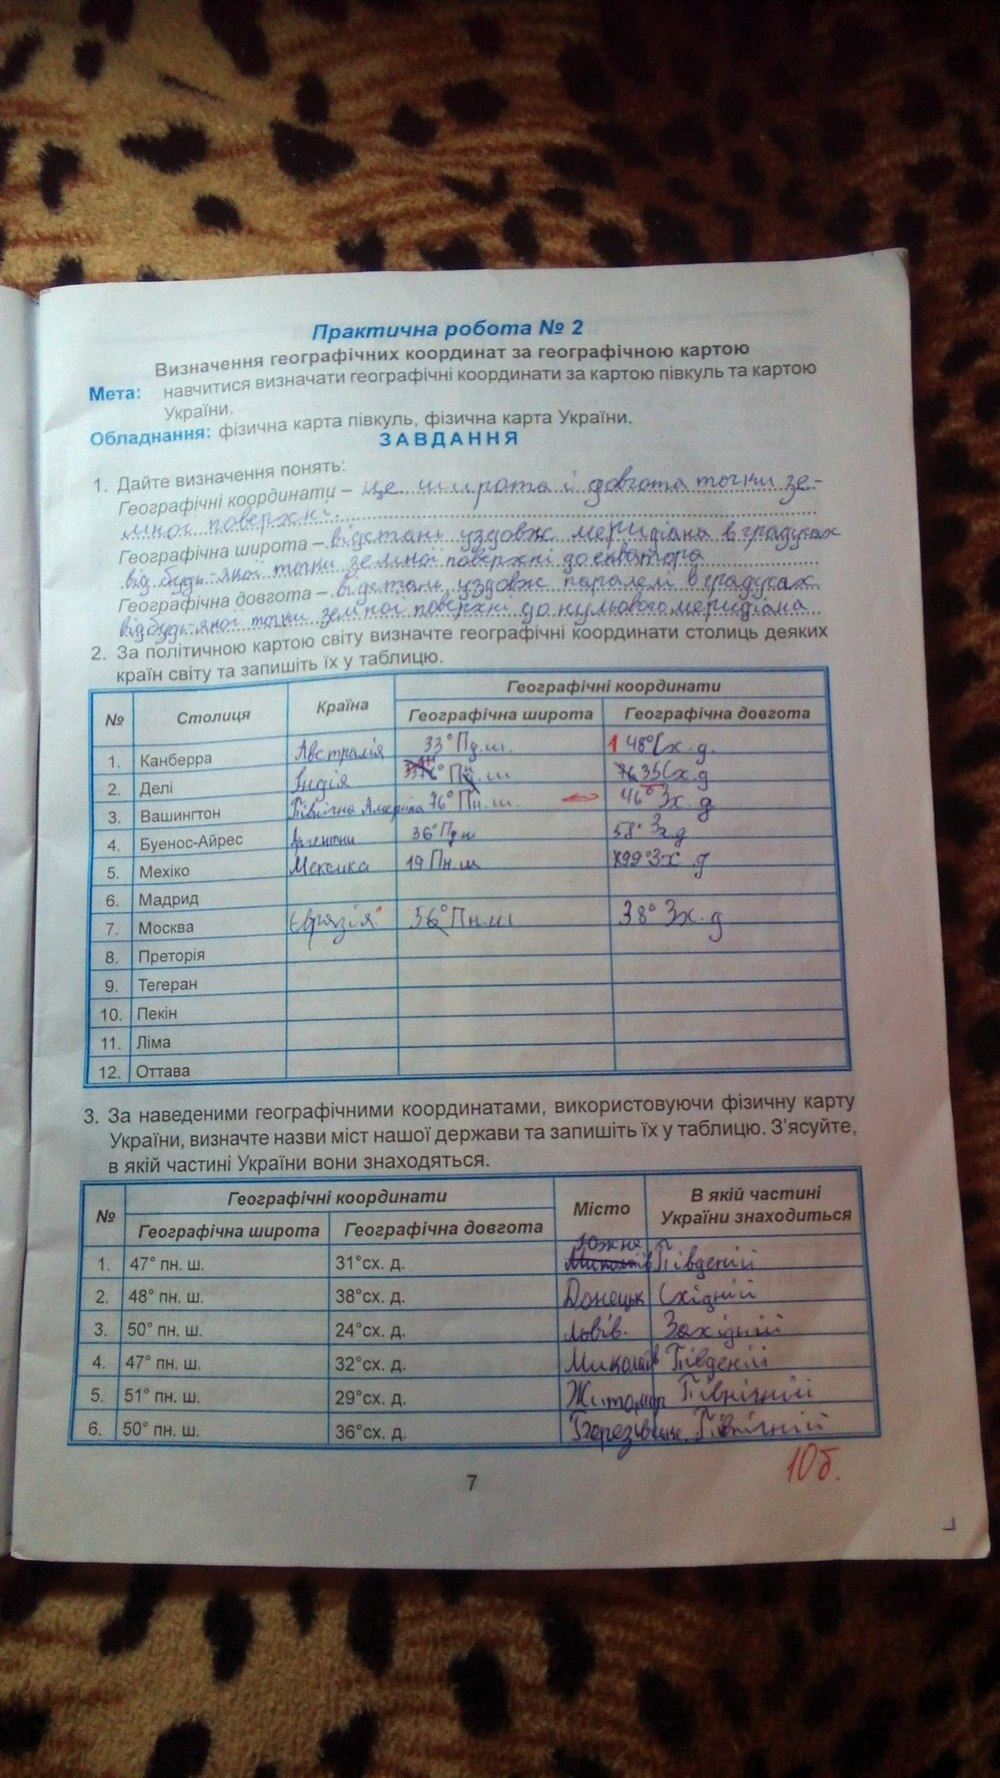 Практична робота № 2
Визначення географічних координат за географічною картою
Мета: навчитися визначати географічні координати за картою півкуль та картою
України.
Обладнання: фізична карта півкуль, фізична карта України.
ЗАВДАННЯ
1. Дайте визначення понять:
Географічні координати – це широта і довгота точки зе-
мної поверхні.
Географічна широта – відстань уздовж меридіана в градусах
від будь-якої точки земної поверхні до екватора
Географічна довгота – відстань уздовж паралелі в градусах
від будь-якої точки земної поверхні до нульового меридіана
2. За політичною картою світу визначте географічні координати столиць деяких
країн світу та запишіть їх у таблицю.
№ Столиця Країна Географічні координати
Географічна широта Географічна довгота
1. Канберра Австралія 33° Пд.ш. 148° Сх.д.
2. Делі Індія
3. Вашингтон Північна Америка 76° Пн.ш. 46° Зх.д
4. Буенос-Айрес 36° Пд.ш 58° Зх.д
5. Мехіко Мексика 19 Пн.ш 99° Зх.д
6. Мадрид
7. Москва Євразія 56° Пн.ш 38° Зх.д
8. Преторія
9. Тегеран
10. Пекін
11. Ліма
12. Оттава
3. За наведеними географічними координатами, використовуючи фізичну карту
України, визначте назви міст нашої держави та запишіть їх у таблицю. З'ясуйте,
в якій частині України вони знаходяться.
№ Географічні координати Місто В якій частині
Географічна широта Географічна довгота України знаходиться
1. 47° пн. ш. 31°сх. д. Южне Південій
2. 48° пн. ш. 38°сх. д. Донецьк Східній
3. 50° пн. ш. 24°сх. д. Львів. Західний
4. 47° пн. ш. 32°сх. д. Миколаїв Південій
5. 51° пн. ш. 29°сх. д. Житомир Північній
6. 50° пн. ш. 36°сх. д. Північній
7
10б.